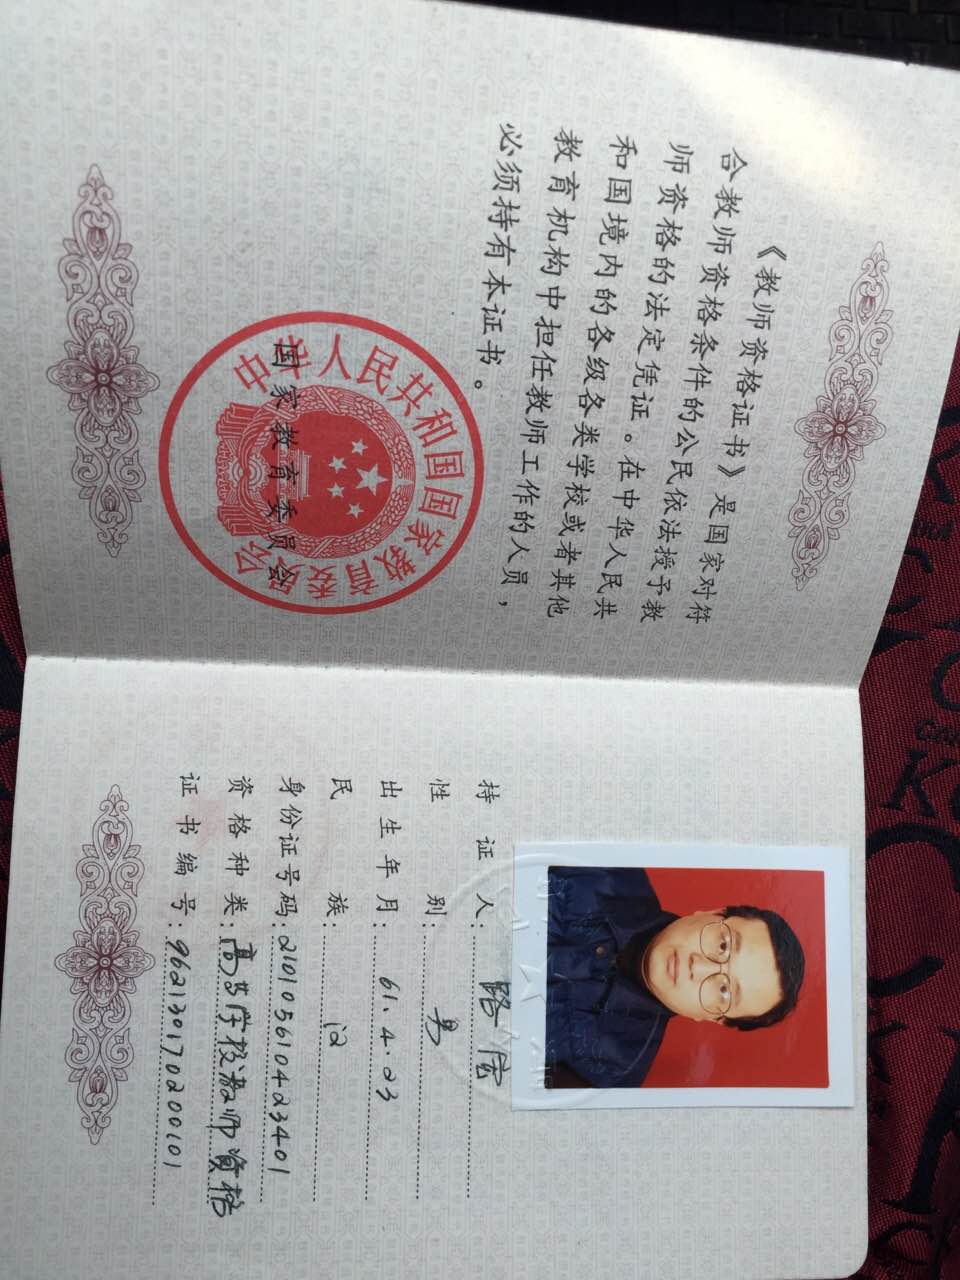 《教师资格证书》是国家对符
合教师资格条件的公民依法授予教
师资格的法定凭证。在中华人民共
和国境内的各级各类学校或者其他
教育机构中担任教师工作的人员，
必须持有本证书。
中华人民共和国国家教育委员会
国家教育委员会
持证人：路宏
性别：男
出生年月：61.4.23
民族：汉
身份证号码：210105610423401
资格种类：高等学校教师资格
证书编号：962130170200101